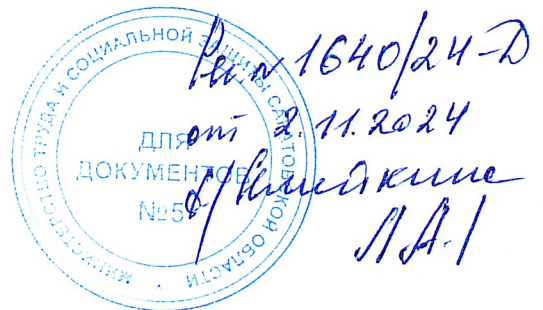 МИНИСТЕРСТВО ТРУДА И СОЦИАЛЬНОЙ ЗАЩИТЫ САРАТОВСКОЙ ОБЛАСТИ
ДЛЯ
ДОКУМЕНТОВ
№5
Рег. № 1640/24-Д
от 2.11.2024
Л.А./